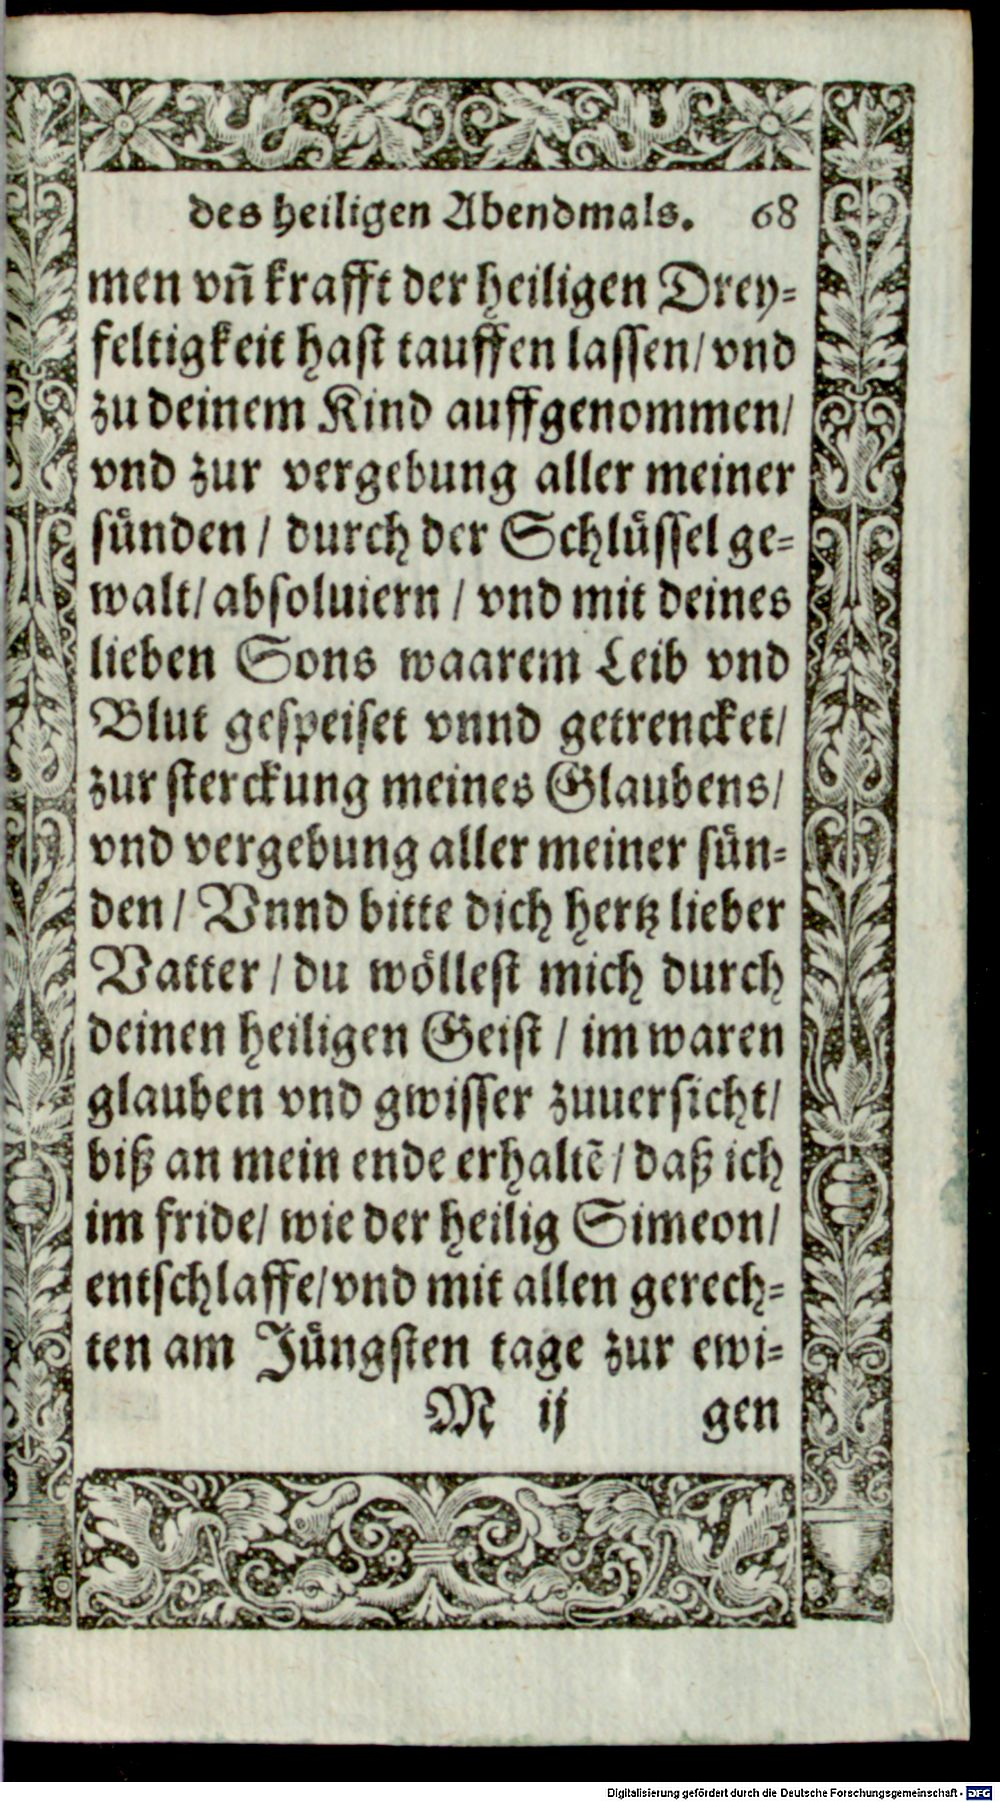 des heiligen Abendmals. 68
men vñ krafft der heiligen Drey=
feltigkeit hast tauffen lassen/ vnd
zu deinem Kind auffgenommen/
vnd zur vergebung aller meiner
sünden / durch der Schlüssel ge=
walt/ absoluiern / vnd mit deines
lieben Sons waarem Leib vnd
Blut gespeiset vnnd getrencket/
zur sterckung meines Glaubens/
vnd vergebung aller meiner sün=
den / Vnnd bitte dich hertz lieber
Vatter / du wöllest mich durch
deinen heiligen Geist / im waren
glauben vnd gwisser zuuersicht/
biß an mein ende erhaltẽ / daß ich
im fride/ wie der heilig Simeon/
entschlaffe/ vnd mit allen gerech=
ten am Jüngsten tage zur ewi=
M ij gen
Digitalisierung gefördert durch die Deutsche Forschungsgemeinschaft - DFG